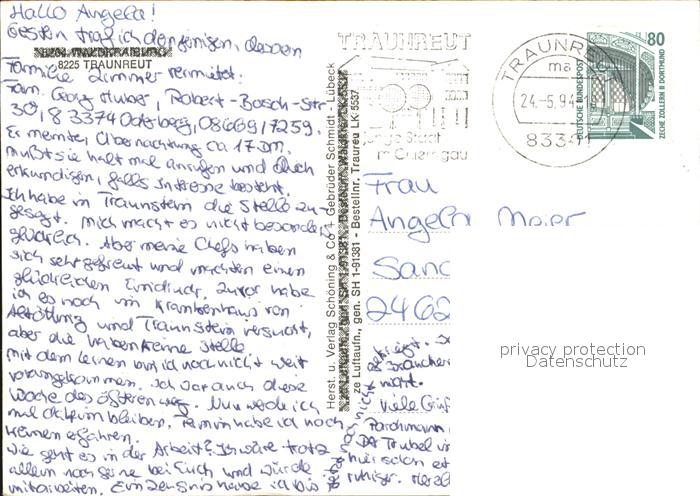 Hallo Angela!
Gestern traf ich denjenigen, dessen
8225 TRAUNREUT
Familie Zimmer vermietet:
Fam. Georg Huber, Robert-Bosch-Str.
30, 83374 08669/7259.
Er meinte, Übernachtung ca 17 DM.
Mußt sie halt mal anrufen und dich
erkundigen, falls Interesse besteht.
Ich habe in Traunstein die Stelle zu-
gesagt. Mich macht es nicht besonders
glücklich. Aber meine Chefs haben
sich sehr gefreut und machten einen
glücklichen Eindruck. Zuvor habe
ich es noch im Krankenhaus von
Altötting und Traunstein versucht,
aber die haben keine Stelle
mit dem lernen bin ich noch nicht weit
vorangekommen. Ich war auch diese
Woche des öfteren weg. Nun werde ich
mal daheim bleiben. Termin habe ich noch
keinen erfahren.
Wie geht es in der Arbeit? Ich wäre trotz
allem noch gerne bei Euch und würde
mitarbeiten. Ein Zeugnis habe ich bis
noch nicht
gekriegt.
brauchen
nicht.
Viele Grüße
Parchmann
Trubel
hier schon
ruhiger.
Herst. u. Verlag Schöning & Co + Gebrüder Schmidt - Lübeck
ze Luftaufn., gen. SH 1-91381 - Bestellnr. Traureu LK 5537
TRAUNREUT
junge Stadt
im Chiemgau
TRAUNREUT
ma
24.-5.94
83301
80
DEUTSCHE BUNDESPOST
ZECHE ZOLLERN II DORTMUND
Frau
Angela Maier
Sand
2462
privacy protection
Datenschutz